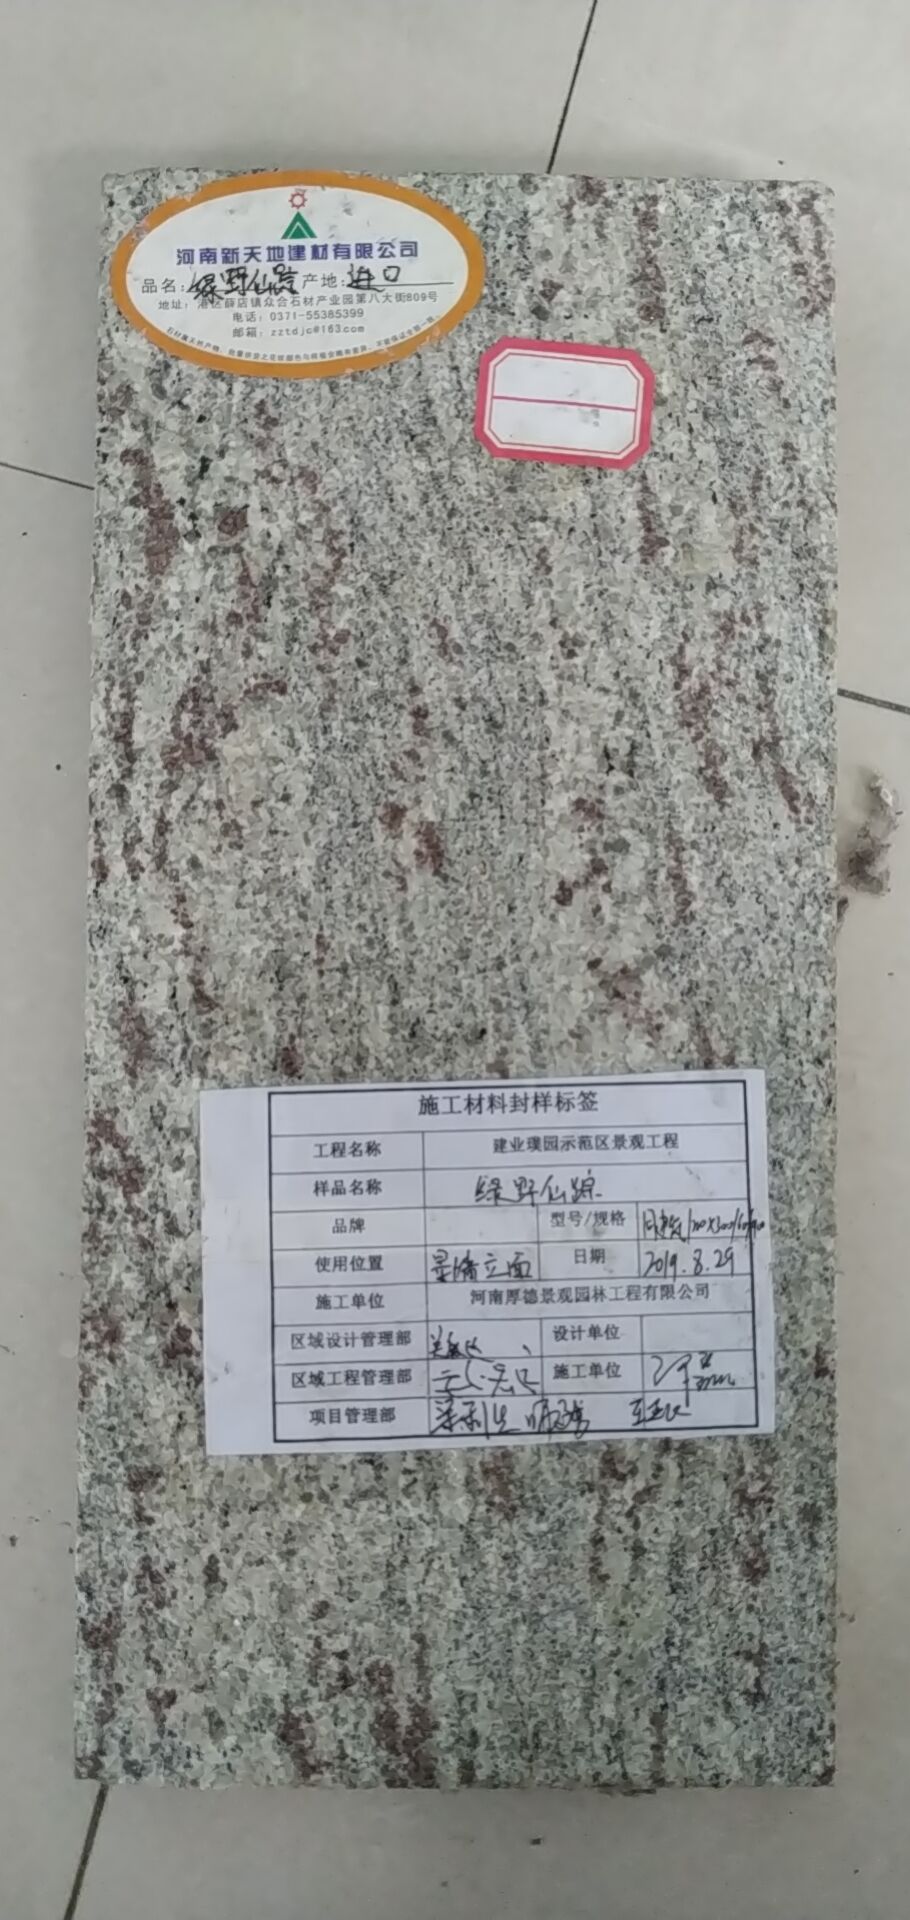 河南新天地建材有限公司
品名:绿野仙踪 产地:进口
地址:港区薛店镇众合石材产业园第八大街809号
电话:0371-55385399
邮箱:zztdjc@163.com
施工材料封样标签
工程名称 建业璞园示范区景观工程
样品名称 绿野仙踪
品牌 型号/规格
使用位置 景墙立面 日期 2019.8.29
施工单位 河南厚德景观园林工程有限公司
区域设计管理部 设计单位
区域工程管理部 施工单位
项目管理部